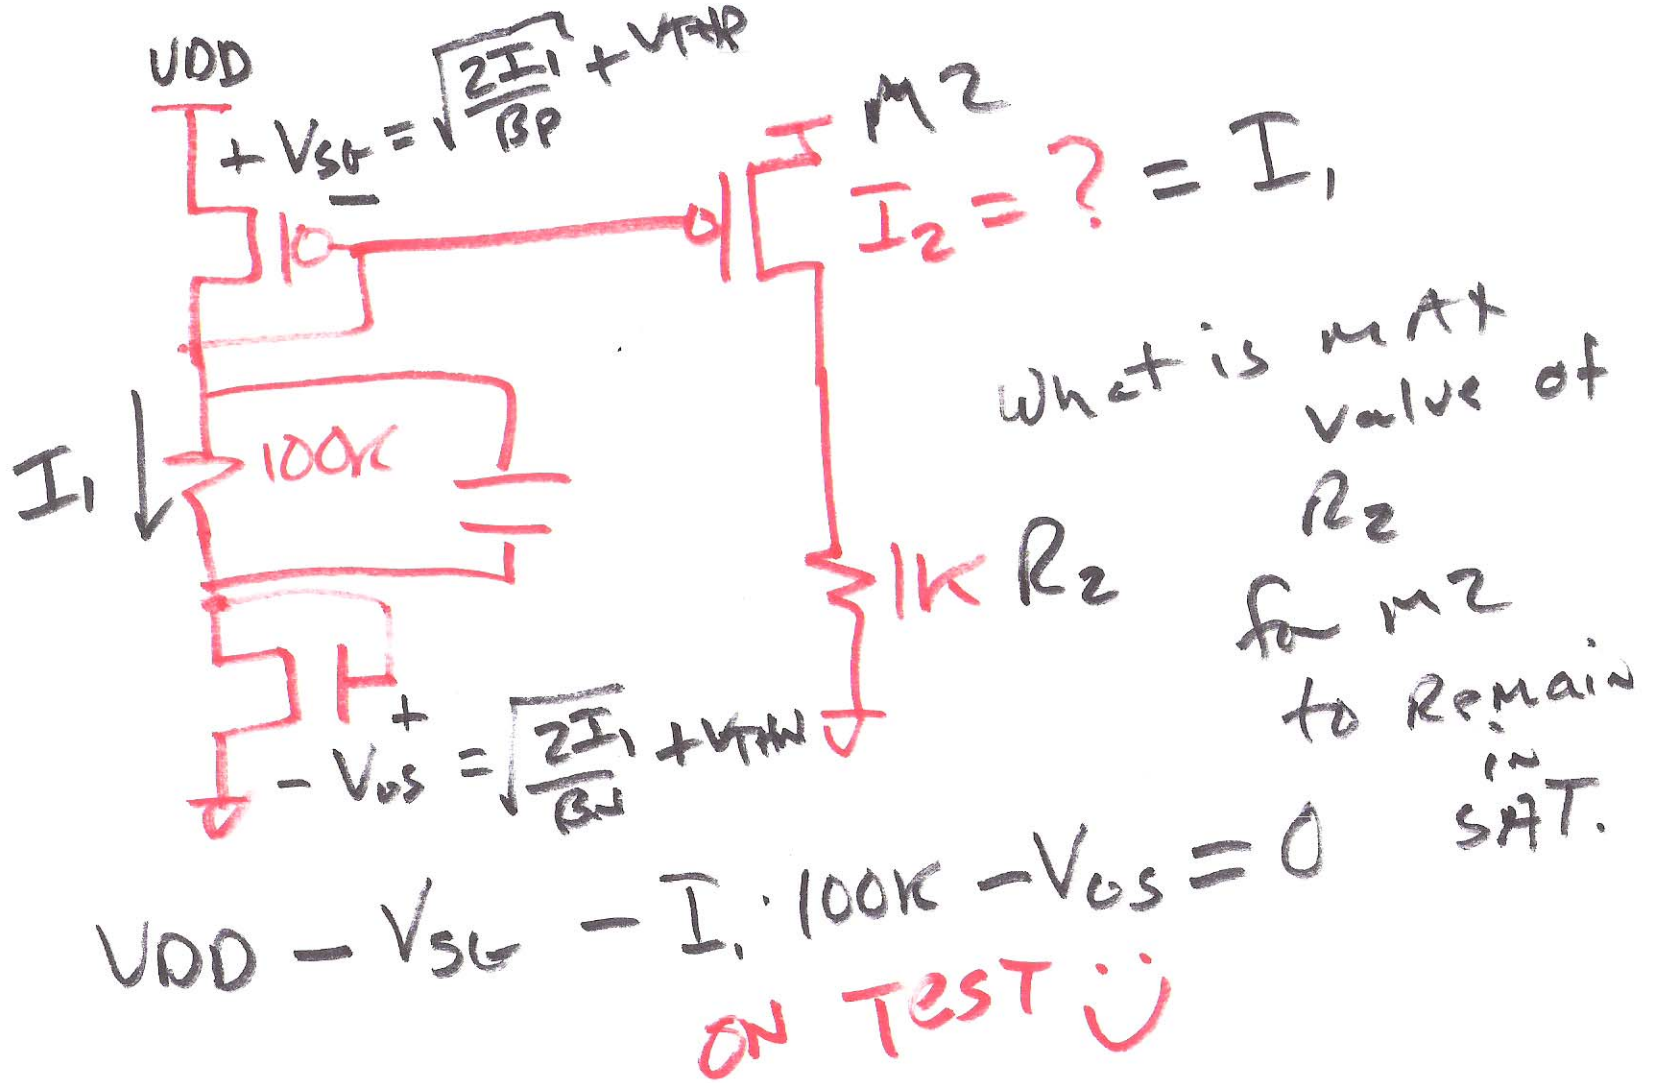 VDD
+ VSG = √(2I1/βP) + VTHP
−
M2
I2 = ? = I1
What is MAX
value of
R2
for M2
to Remain
in
SAT.
I1
100K
1K R2
+
− VGS = √(2I1/βN) + VTHN
VDD − VSG − I1 · 100K − VGS = 0
ON TEST